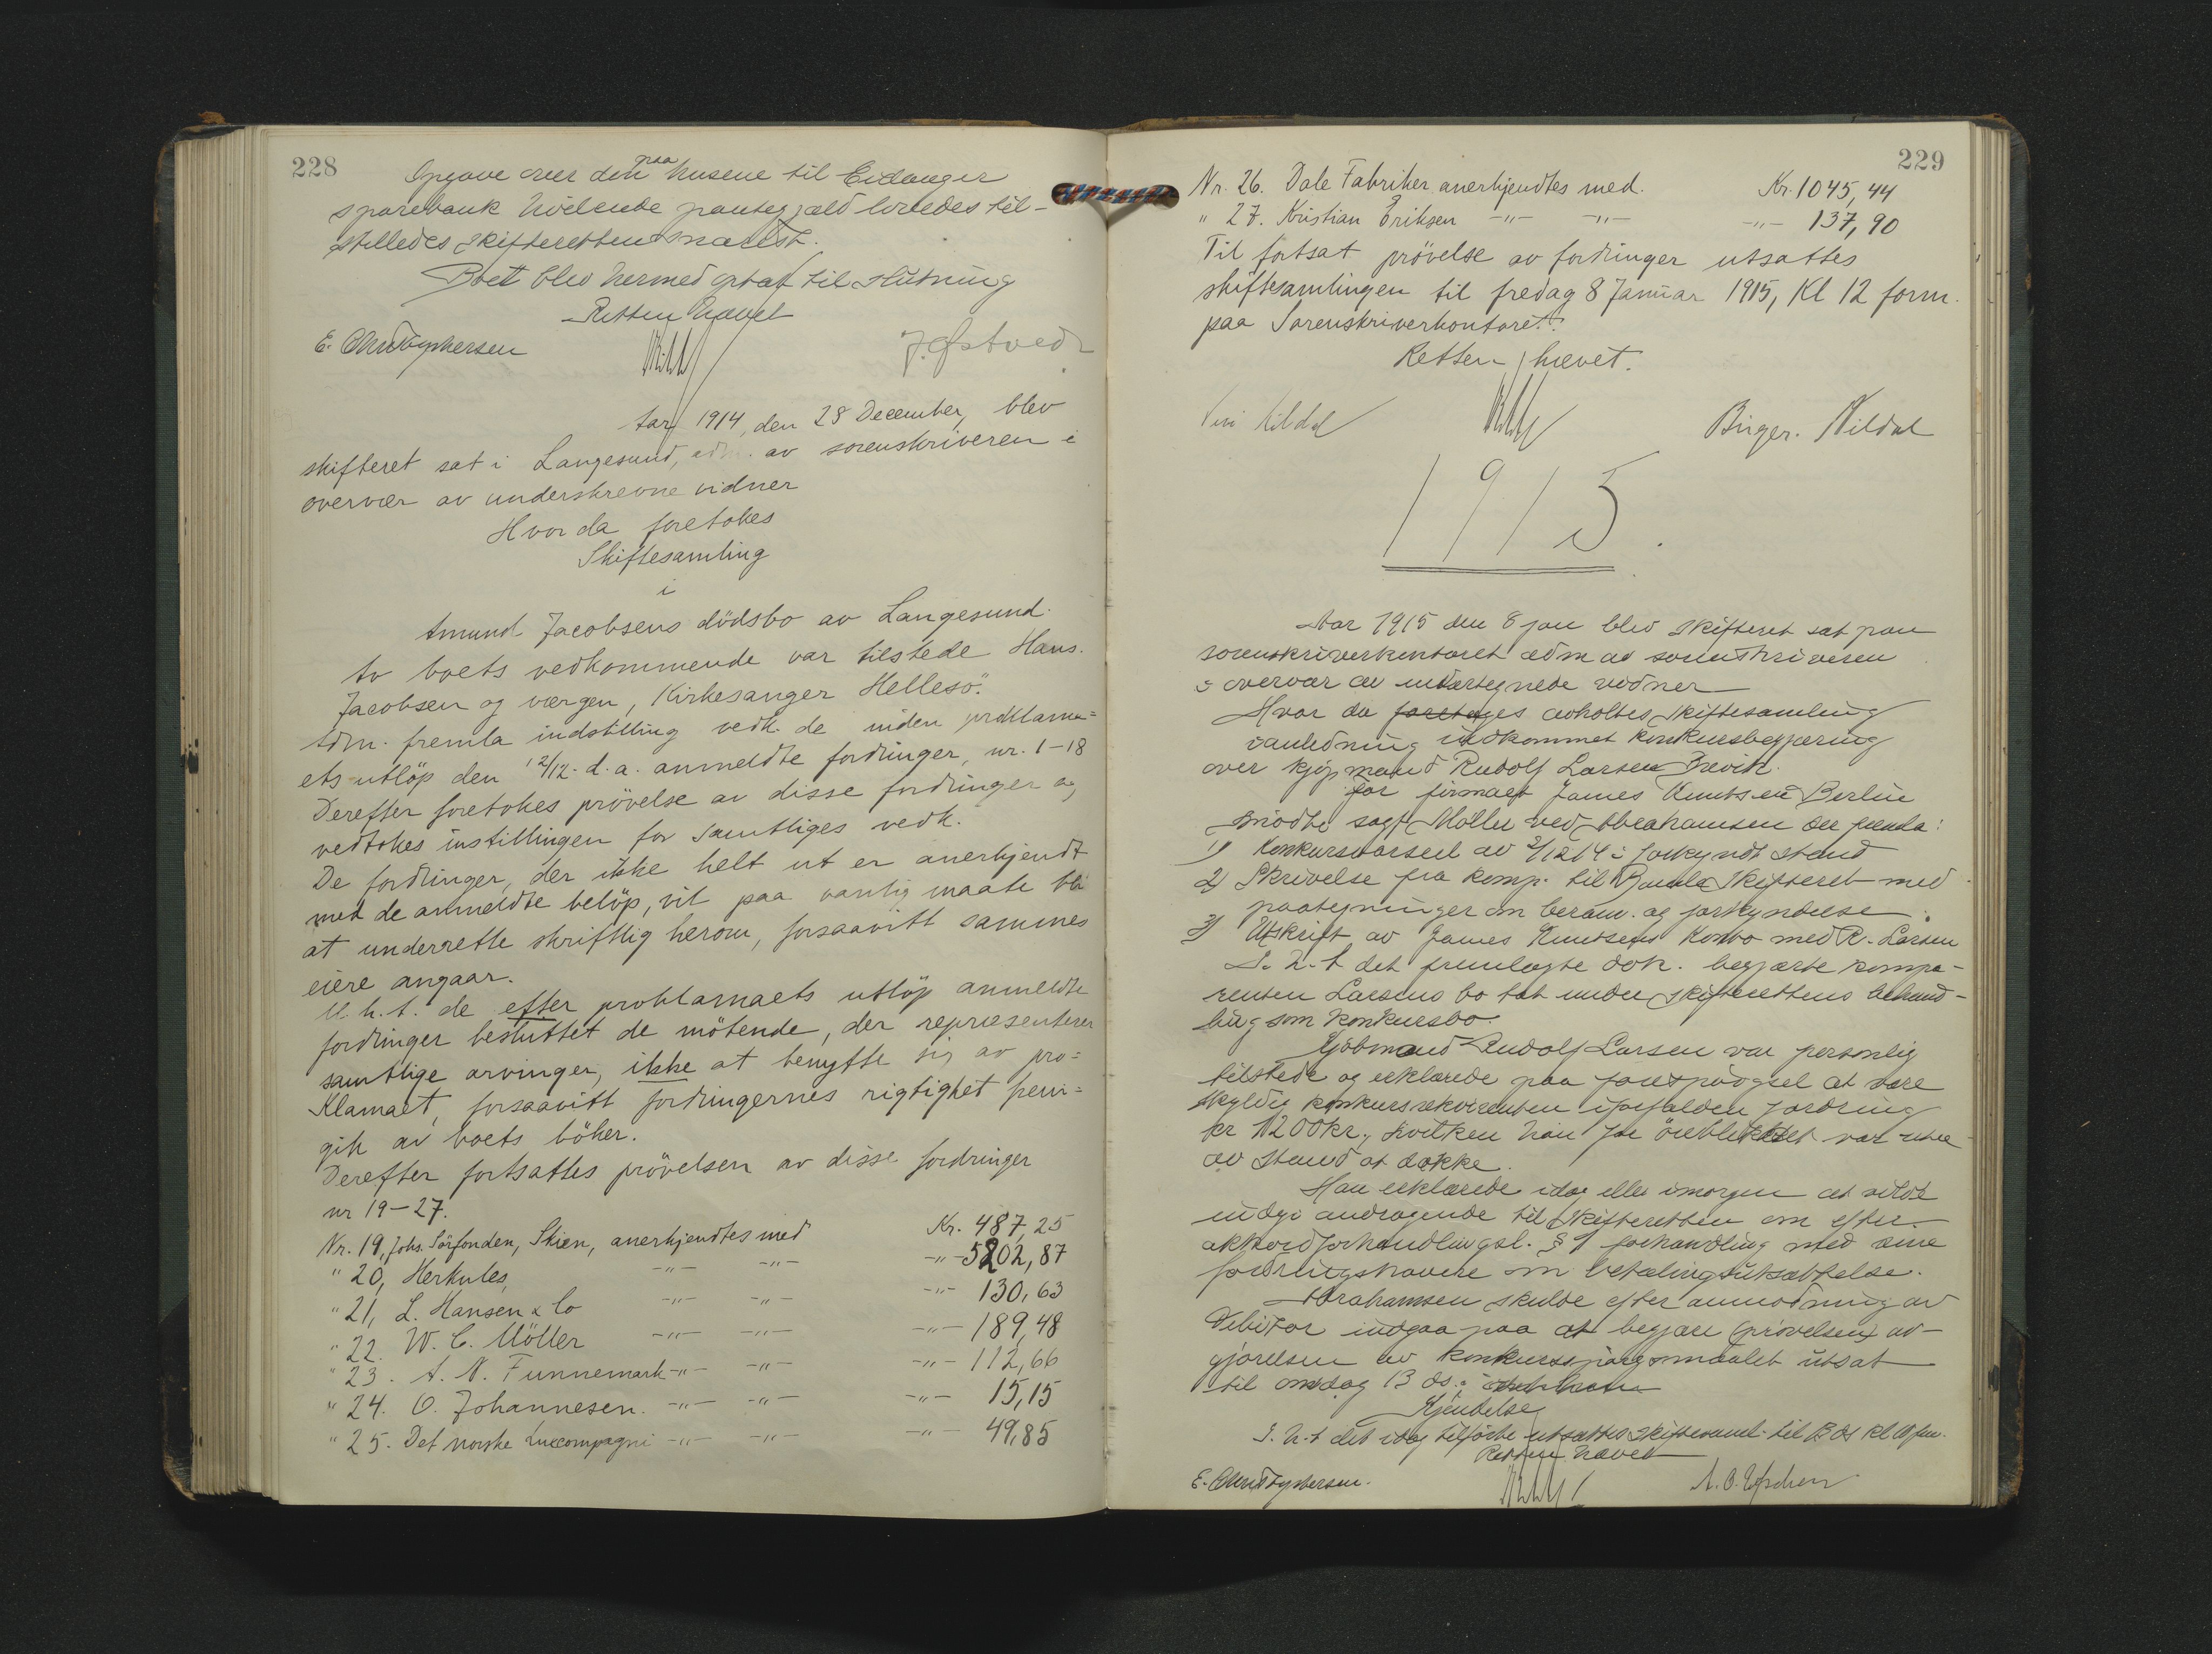 228
Opgave over den paa husene til Eidanger
sparebank hvilende pantegjæld lovedes til-
stilledes skifteretten snarest.
Boet blev hermed optat til slutning
Retten hævet
E. Christophersen
J. Østvedt
Aar 1914, den 28 December, blev
skifteret sat i Langesund, adm. av sorenskriveren i
overvær av underskrevne vidner
Hvor da foretokes
Skiftesamling
i
Amund Jacobsens dödsbo av Langesund.
Av boets vedkommende var tilstede Hans.
Jacobsen og værgen, Kirkesanger Hellesö.
Adm. fremla indstilling vedk. de inden proklama=
ets utlöp den 12/12. d.a. anmeldte fordringer, nr. 1-18
Derefter foretokes prövelse av disse fordringer og
vedtokes instillingen for samtliges vedk.
De fordringer, der ikke helt ut er anerkjendt
med de anmeldte belöp, vil paa vanlig maate bli
at underrette skriftlig herom, forsaavitt sammes
eiere angaar.
M.h.t. de efter proklamaets utlöp anmeldte
fordringer besluttet de mötende, der repræsenterer
samtlige arvinger, ikke at benytte sig av pro=
klamaet, forsaavitt fordringernes rigtighet frem=
gik av boets böker.
Derefter fortsattes prövelsen av disse fordringer
nr 19-27.
Nr. 19, Johs. Sörfonden, Skien, anerkjendtes med Kr. 487,25
" 20, Herkules, -"- -"- -"- 5202,87
" 21, L. Hansen & Co -"- -"- -"- 130,63
" 22. W. C. Möller -"- -"- -"- 189,48
" 23. A. N. Funnemark -"- -"- -"- 112,66
" 24. O. Johannesen. -"- -"- -"- 15,15
" 25. Det norske Luxcompagni -"- -"- -"- 49,85
229
Nr. 26. Dale Fabriker anerkjendtes med. Kr. 1045,44
" 27. Kristian Eriksen -"- -"- -"- 137,90
Til fortsat prövelse av fordringer utsattes
skiftesamlingen til fredag 8 Januar 1915, Kl 12 form.
paa Sorenskriverkontoret.
Retten hævet.
Nildal
Birger. Nildal
1915.
Aar 1915 den 8 jan blev skifteret sat paa
sorenskriverkontoret adm av sorenskriveren
i overvær av undertegnede vidner
Hvor da foretages avholtes skiftesamling
i anledning indkommet konkursbegjæring
over kjøpmand Rudolf Larsen Brevik.
For firmaet James Knutsen Berlin
mødte sagf. Møller ved Abrahamsen der fremla:
1) Konkursvarsel av 2/12 14 i forkyndt stand
2) Skrivelse fra komp. til Bamle Skifteret med
paategninger om beram. og forkyndelse.
3) Utskrift av James Knutsens Konto med R. Larsen
I h.t det fremlagte dok. begjærte kompa-
renten Larsens bo tat under skifterettens behand-
ling som konkursbo.
Kjøbmand Rudolf Larsen var personlig
tilstede og erklærede paa forespørgsel at være
skyldig konkursrekvirenten i forfalden fordring
kr 1200 kr., hvilken han for öieblikket var ute
av stand at dække.
Han erklærede idag eller imorgen at vilde
indgi andragende til skifteretten om efter
akkordforhandlingsl. § 1 forhandling med sine
fordringshavere om betalingsutsættelse.
Abrahamsen skulde efter anmodning av
Debitor indgaa paa at begjære (prövelsen) av-
gjörelsen av konkursspørgsmaalet utsat
til onsdag 13 ds.
Kjendelse
I h.t det idag tilførte utsattes skiftesaml. til 13 ds kl fm.
Retten hævet
E. Christophersen.